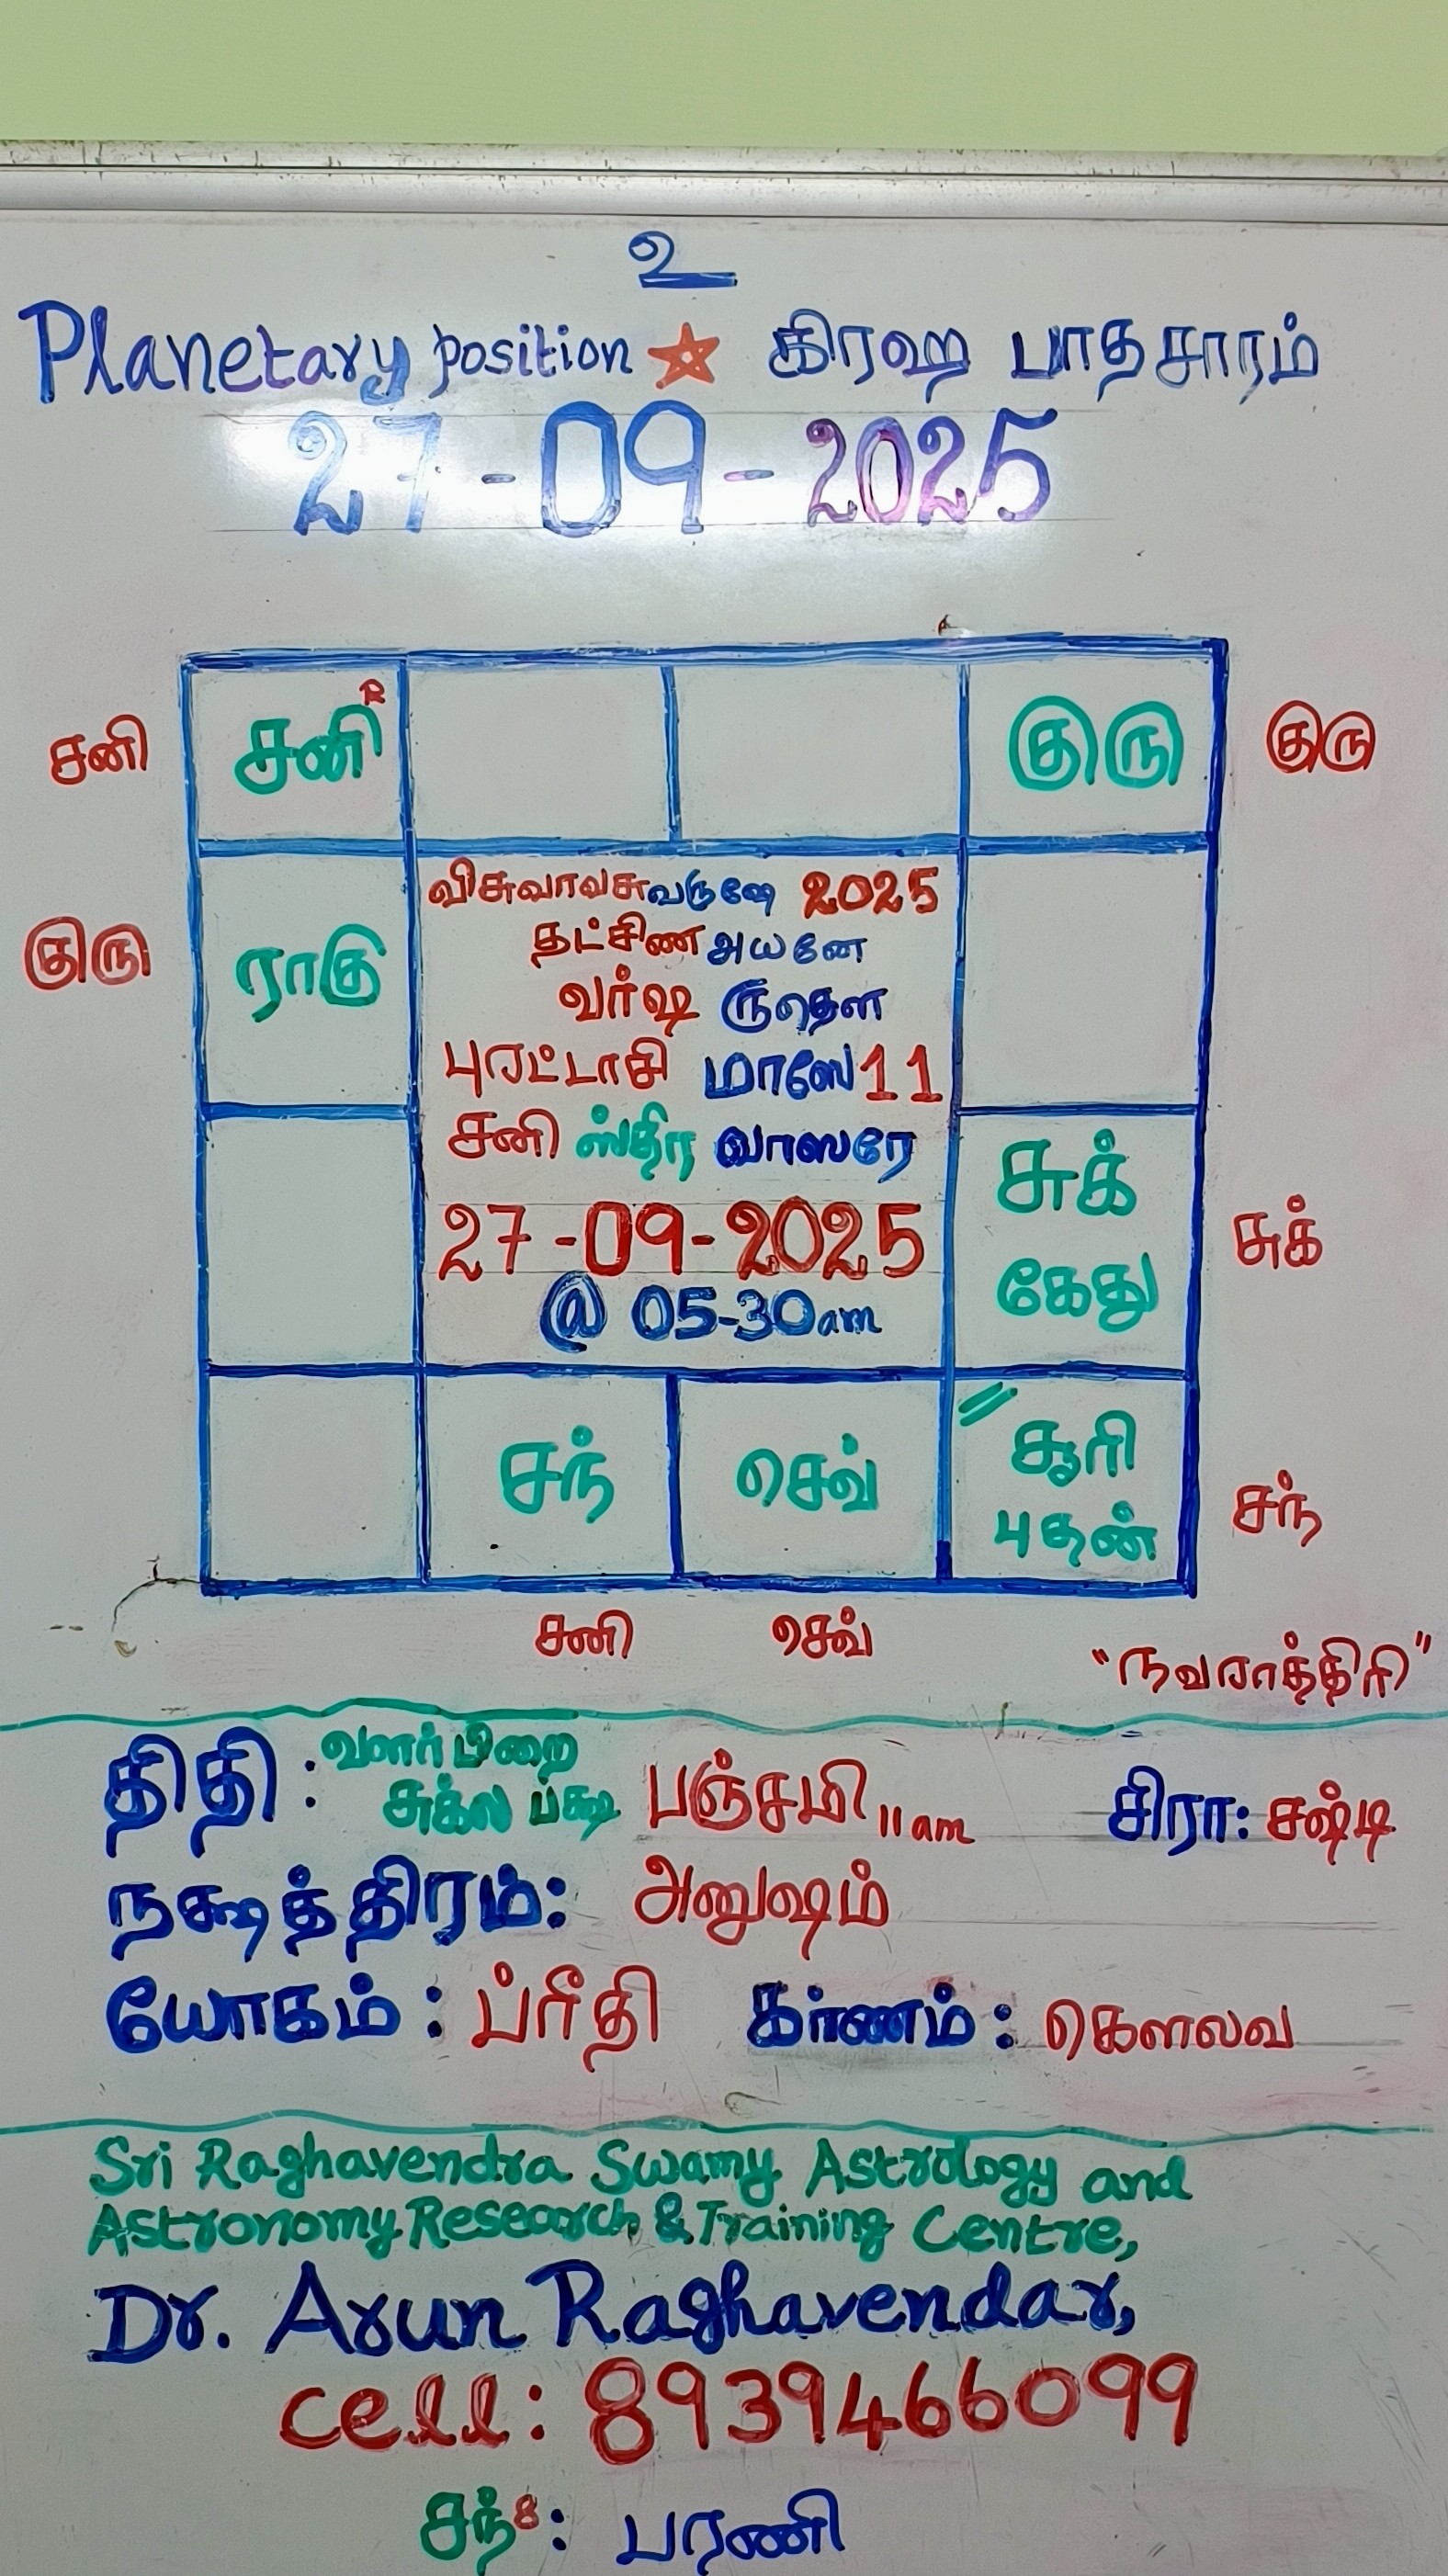 உ
Planetary position கிரஹ பாதசாரம்
27-09-2025
சனி சனி R குரு குரு
விசுவாவசுவருஷே 2025
தட்சிண அயனே
குரு ராகு வர்ஷ ருதௌ
புரட்டாசி மாஸே 11
சனி ஸ்திர வாஸரே
சுக்
27-09-2025 சுக்
@ 05-30am கேது
சந் செவ் சூரி
புதன் சந்
சனி செவ்
"நவராத்திரி"
திதி: வளர்பிறை
சுக்ல பக்ஷ பஞ்சமி 11am சிரா: சஷ்டி
நக்ஷத்திரம்: அனுஷம்
யோகம்: ப்ரீதி கர்ணம்: கௌலவ
Sri Raghavendra Swamy Astrology and
Astronomy Research & Training Centre,
Dr. Arun Raghavendar,
cell: 8939466099
சந் 8: பரணி